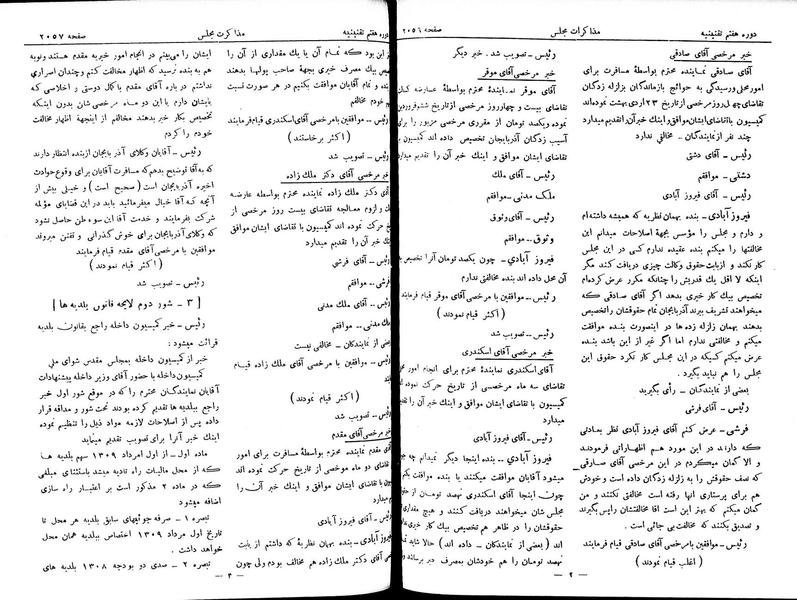 دوره هفتم تقنینیه
مذاکرات مجلس
صفحه ۲۰۵۶
خبر مرخصی آقای صادقی
آقای صادقی نماینده محترم بواسطهٔ مسافرت برای
امور محلی و رسیدگی به حوائج بازماندگان بزلزله زدگان
تقاضای چهل روز مرخصی از تاریخ ۲۳ اردی بهشت نموده‌اند
کمیسیون با تقاضای ایشان موافق و اینك خبر آن را تقدیم میدارد
چند نفر از نمایندگان ـ مخالفی ندارد
رئیس ـ آقای دشتی
دشتی ـ موافقم
رئیس ـ آقای فیروز آبادی
فیروزآبادی ـ بنده بهمان نظریه که همیشه داشته‌ام
و دارم و مجلس را مؤسس بجههٔ اصلاحات میدانم این
مخالفتها را میکنم بنده عقیده ندارم کسی در این مجلس
کار نکند و از بابت حقوق وکالت چیزی دریافت کند مگر
اینکه لا اقل یك قدریش را چنانکه مکرر عرض کرده‌ام
تخصیص بیك کار خیری بدهد اگر آقای صادقی که
میخواهند تشریف ببرند آذربایجان تمام حقوقشان را تخصیص
بدهند بهمان زلزله زده ها در اینصورت بنده موافقت
میکنم و مخالفتی ندارم اما اگر غیر از این باشد بنده
عرض میکنم کسیکه در این مجلس کار نکرد حقوق این
مجلس را هم نباید بگیرد .
بعضی از نمایندگان ـ رأی بگیرید
رئیس ـ آقای فرشی
فرشی ـ عرض کنم آقای فیروز آبادی نظر بعادتی
که دارند در این مورد هم اظهاراتی فرمودند
و الا گمان میکردم در این مرخصی آقای صادقی
که نصف حقوقش را به زلزله زدگان داده است و خودش
هم برای پرستاری آنها رفته است مخالفتی نکنند و من
گمان میکنم که بهتر این است آقا مخالفتشان را پس بگیرند
و تصدیق بکنند که مخالفت بی جائی است .
رئیس ـ موافقین با مرخصی آقای صادقی قیام فرمایند
( اغلب قیام نمودند )
رئیس ـ تصویب شد . خبر دیگر
خبر مرخصی آقای موقر
آقای موقر نماینده محترم بواسطهٔ عارضه
تقاضای بیست و چهار روز مرخصی از تاریخ ششم فروردین
نموده و یکصد تومان از مقرری مرخصی مزبور را برای
آسیب زدگان آذربایجان تخصیص داده اند کمیسیون
تقاضای ایشان موافق و اینك خبر آن را تقدیم
رئیس ـ آقای ملك
ملك مدنی ـ موافقم
رئیس ـ آقای وثوق
وثوق ـ موافقم
فیروز آبادی ـ چون یکصد تومان آنرا تخصیص
آن محل داده اند بنده مخالفتی ندارم
رئیس ـ موافقین با مرخصی آقای موقر قیام فرمایند
( اکثر قیام نمودند )
رئیس ـ تصویب شد
خبر مرخصی آقای اسکندری
آقای اسکندری نمایندهٔ محترم برای انجام امور
تقاضای سه ماه مرخصی از تاریخ حرکت نموده
کمیسیون با تقاضای ایشان موافق و اینك خبر آن را تقدیم
میدارد
رئیس ـ آقای فیروز آبادی
فیروز آبادی ـ بنده اینجا دیگر نمیدانم چه
میشود آقایان موافقت میکنند یا بنده موافقت
چون اینجا آقای اسکندری نهصد تومان از
مجلس شان میخواهند دریافت کنند و هیچ مقداری
حقوقشان را در ظاهر هم تخصیص بیك کار خیری
اند ( بعضی از نمایندگان ـ داده اند ) حالا شاید
نهصد تومان را هم خودشان بمصرف
ـ ۲ ـ
دوره هفتم تقنینیه
مذاکرت مجلس
صفحه ۲۰۵۷
این بود که تمام آن یا یك مقداری از آن
بیك مصرف خیری بجههٔ صاحب پولها بدهند
و تمام آقایان موافقت بکنیم در هر صورت نسبت
هم مخالفم
رئیس ـ موافقین با مرخصی آقای اسکندری قیام فرمایند
( اکثر برخاستند )
رئیس ـ تصویب شد
خبر مرخصی آقای دکتر ملك زاده
آقای دکتر ملك زاده نماینده محترم بواسطه عارضه
و لزوم معالجه تقاضای بیست روز مرخصی از
نموده اند کمیسیون با تقاضای ایشان موافق
خبر آن را تقدیم میدارد
رئیس ـ آقای فرشی
فرشی ـ موافقم
رئیس ـ آقای ملك مدنی
ملك مدنی ـ موافقم
بعضی از نمایندگان ـ مخالفی نیست
رئیس ـ موافقین با مرخصی آقای ملك زاده قیام
فرمایند
( اکثر قیام نمودند )
رئیس ـ تصویب شد
خبر مرخصی آقای مقدم
آقای مقدم نماینده محترم بواسطهٔ مسافرت برای امور
تقاضای دو ماه مرخصی از تاریخ حرکت نموده اند
با تقاضای ایشان موافق و اینك خبر آن را
میدارد
رئیس ـ آقای فیروز آبادی
فیروز آبادی ـ بنده بهمان نظریهٔ که داشتم از بابت
آقای دکتر ملك زاده هم مخالف بودم ولی چون
ایشان را می‌بینم در انجام امور خیریه مقدم هستند و نوبه
هم به بنده نرسید که اظهار مخالفت کنم و چندان اصراری
نداشتم در باره آقای مقدم با کمال دوستی و اخلاصی که
بایشان دارم با این دو ماه مرخصی شان بدون اینکه
تخصیص بکار خیر بدهند مخالفم از اینجهة اظهار مخالفت
خودم را کردم
رئیس ـ آقایان وکلای آذربایجان از بنده انتظار دارند
که به آقا توضیح بدهم که مسافرت آقایان برای وقوع حوادث
اخیره آذربایجان است ( صحیح است ) و خیلی بیش از
آنچه که آقا خیال میفرمائید باید در این قضایای مؤلمه
شرکت بفرمایند و خدمت آقا این سوء ظن حاصل نشود
که وکلای آذربایجان برای خوش گذرانی و تفنن میروند
موافقین با مرخصی آقای مقدم قیام فرمایند
( اکثر قیام نمودند )
رئیس ـ تصویب شد
[ ۳ ـ شور دوم لایحه قانون بلدیه ها ]
رئیس ـ خبر کمیسیون داخله راجع بقانون بلدیه
قرائت میشود :
خبر از کمیسیون داخله بمجلس مقدس شورای ملی
کمیسیون داخله با حضور آقای وزیر داخله پیشنهادات
آقایان نمایندگان محترم را که در موقع شور اول خبر
راجع ببلدیه ها تقدیم کرده بودند تحت شور و مداقه قرار
داده پس از اصلاحات لازمه مواد ذیل را تنظیم نموده
اینك خبر آنرا برای تصویب تقدیم مینماید
ماده اول ـ از اول امرداد ۱۳۰۹ سهم بلدیه ها
که از محل مالیات راه تادیه میشد باستثنای مبلغی
که در ماده ۲ مذکور است بر اعتبار راه سازی
اضافه میشود
تبصره ۱ ـ صرفه جوئیهای سابق بلدیه هر محل تا
تاریخ اول مرداد ۱۳۰۹ اختصاص ببلدیه همان محل
خواهد داشت .
تبصره ۲ ـ صدی دو بودجه ۱۳۰۸ بلدیه های
ـ ۳ ـ